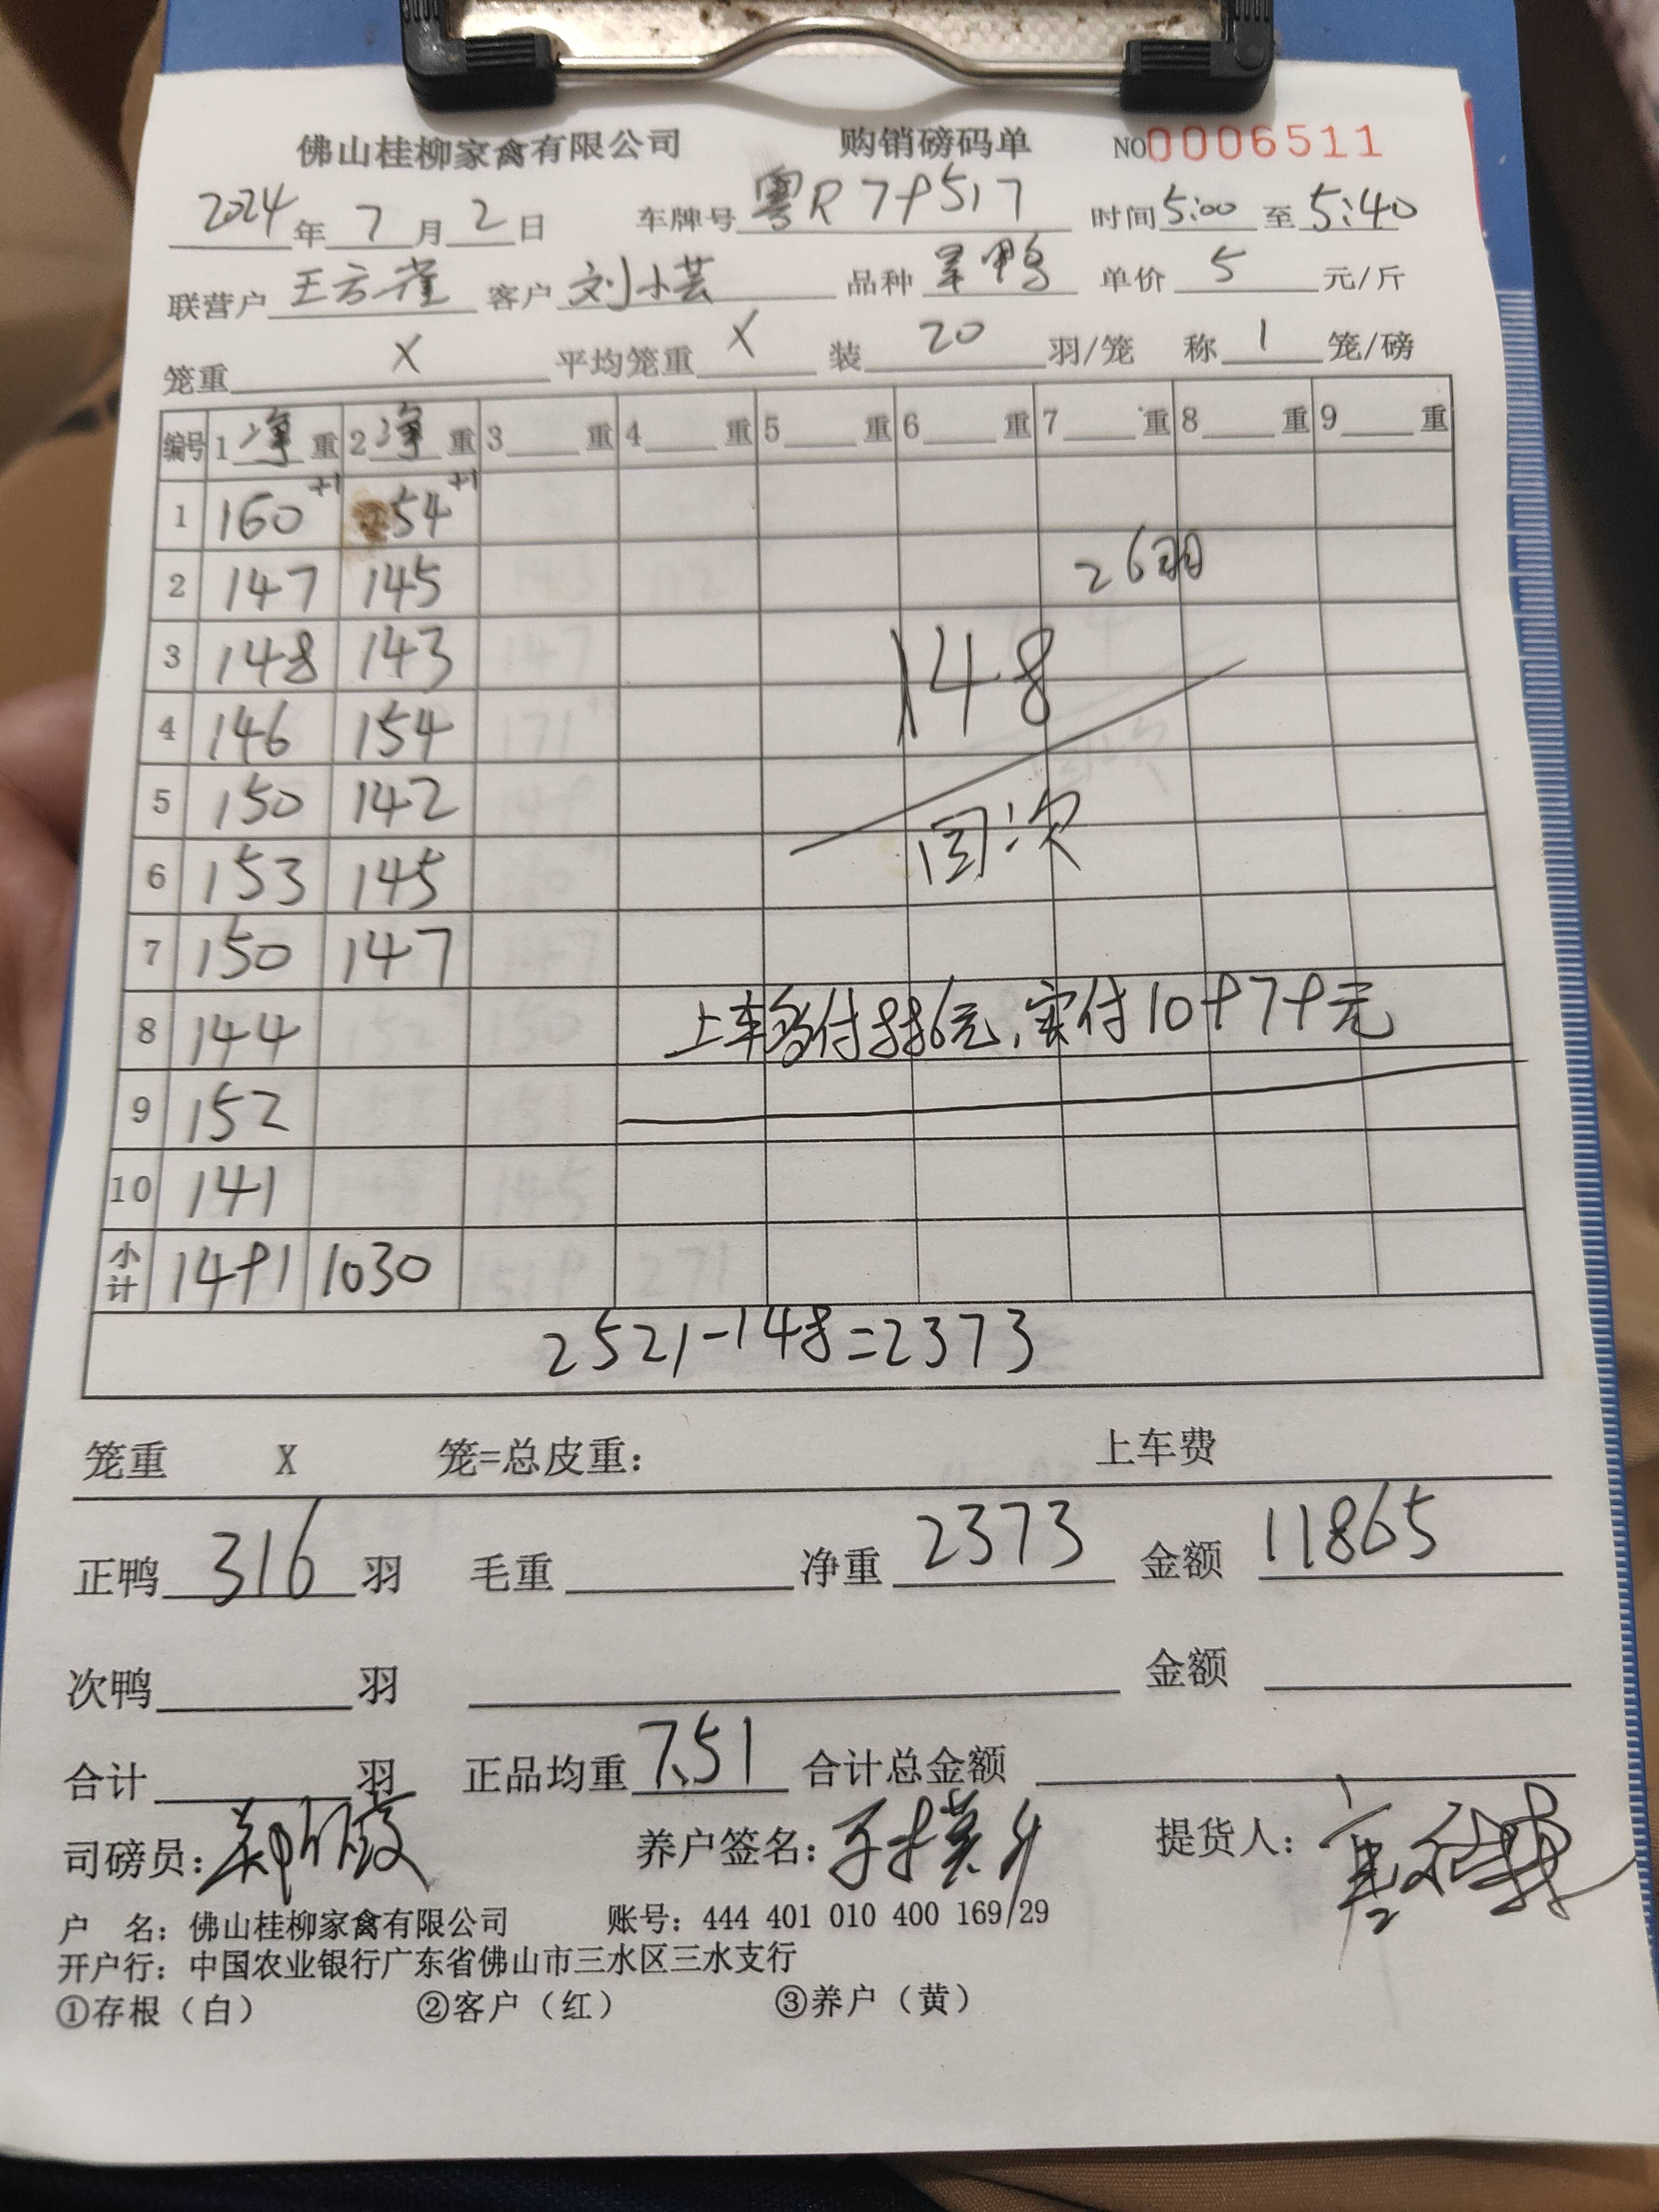 佛山桂柳家禽有限公司 购销磅码单 NO0006511
2024年7月2日 车牌号粤R79517 时间5:00至5:40
联营户 客户刘小芸 品种 单价5元/斤
笼重X 平均笼重X 装20羽/笼 称1笼/磅
编号 1净重 2净重 3重 4重 5重 6重 7重 8重 9重
1 160+1 154+1
2 147 145 26羽
3 148 143 148
4 146 154
5 150 142 回次
6 153 145
7 150 147
8 144 上车 付886元,实付10979元
9 152
10 141
小计 1491 1030
2521-148=2373
笼重 X 笼=总皮重: 上车费
正鸭316羽 毛重 净重2373 金额11865
次鸭 羽 金额
合计 羽 正品均重7.51 合计总金额
司磅员: 养户签名: 提货人:
户 名: 佛山桂柳家禽有限公司 账号: 444 401 010 400 169/29
开户行: 中国农业银行广东省佛山市三水区三水支行
①存根(白) ②客户(红) ③养户(黄)